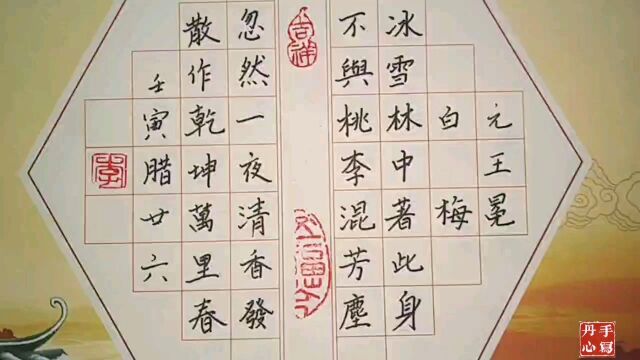 元王冕
白梅
冰雪林中著此身
不與桃李混芳塵
吉祥
忽然一夜清香發
散作乾坤萬里春
壬寅腊廿六
手寫
丹心